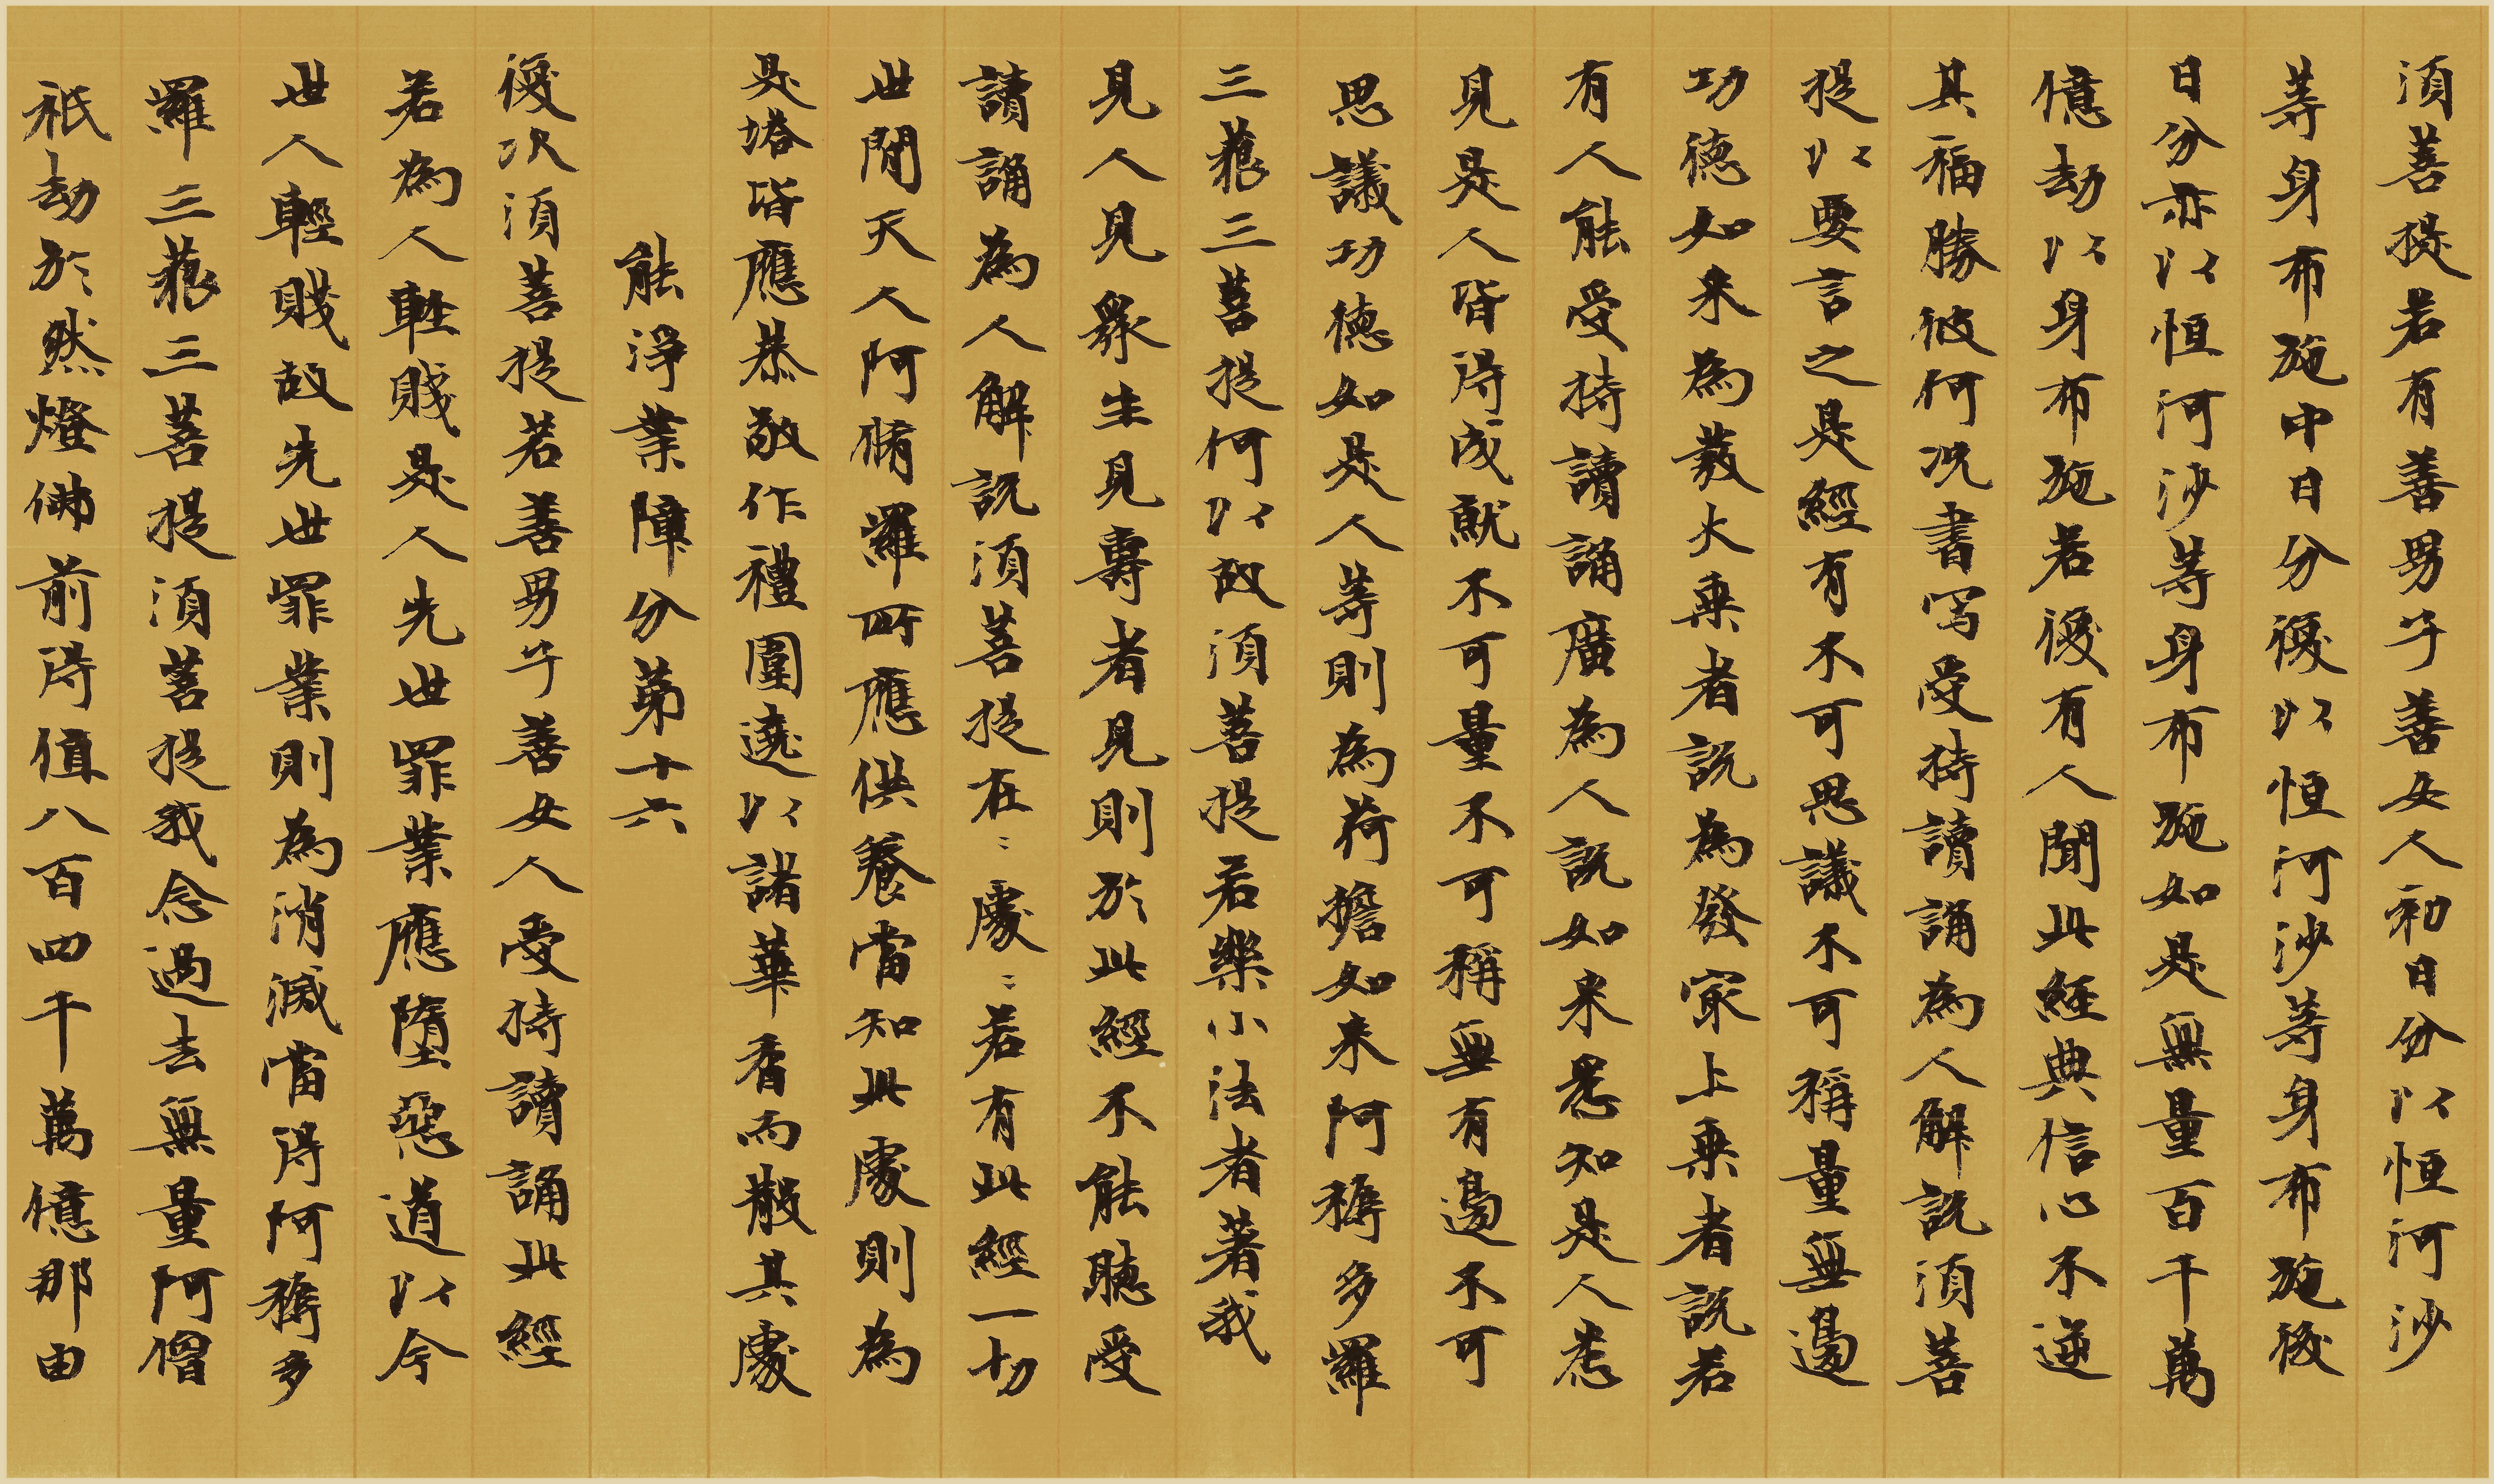 須菩提若有善男子善女人初日分以恒河沙
等身布施中日分復以恒河沙等身布施後
日分亦以恒河沙等身布施如是無量百千萬
億劫以身布施若復有人聞此經典信心不逆
其福勝彼何況書寫受持讀誦為人解説須菩
提以要言之是經有不可思議不可稱量無邊
功德如来為發大乗者説為發冣上乗者説若
有人能受持讀誦廣為人説如来悉知是人悉
見是人皆得成就不可量不可稱無有邊不可
思議功德如是人等則為荷擔如来阿耨多羅
三藐三菩提何以故須菩提若樂小法者著我
見人見衆生見壽者見則於此經不能聽受
讀誦為人解説須菩提在〻處〻若有此經一切
世間天人阿脩羅所應供養當知此處則為
是塔皆應恭敬作禮圍遶以諸華香而散其處
能淨業障分第十六
復次須菩提若善男子善女人受持讀誦此經
若為人輕賤是人先世罪業應墮惡道以今
世人輕賤故先世罪業則為消滅當得阿耨多
羅三藐三菩提須菩提我念過去無量阿僧
祇劫於然燈佛前得值八百四千萬億那由